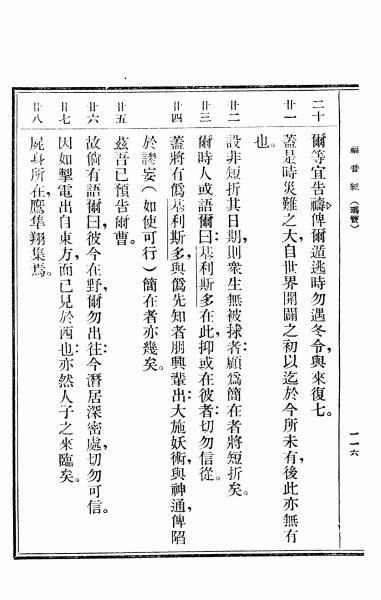 福音經（瑪竇）
一一六
二十　爾等宜告禱，俾爾遁逃時勿遇冬令，與來復七。
廿一　蓋是時災難之大，自世界開闢之初以迄於今所未有，後此亦無有
也。
廿二　設非短折其日期，則衆生無被捄者：顧爲簡在者將短折矣。
廿三　爾時人或語爾曰：基利斯多在此，抑或在彼者：切勿信從。
廿四　蓋將有僞基利斯多，與僞先知者朋興輩出：大施妖術，與神通俾陷
於謬妄（如使可行）簡在者亦幾矣。
廿五　茲吾已預告爾曹。
廿六　故倘有語爾曰：彼今在野，爾勿出往：今潛居深密處，切勿可信。
廿七　因如掣電出自東方，而已見於西也：亦然人子之來臨矣。
廿八　屍身所在，鷹隼翔集焉。